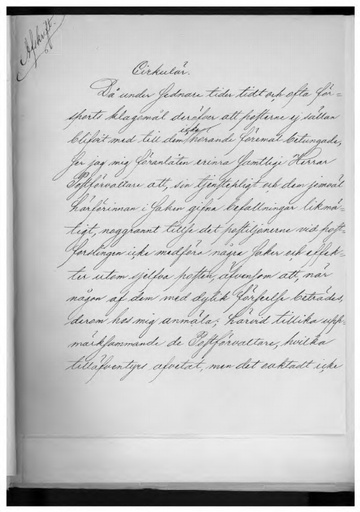 Afskrift.
Cirkulär.
Då under sednare tider tidt och ofta för-
sports klagomål deröfver att posterne ej sällan
blifvit med till dem icke hörande föremål betungade,
får jag mig föranlåten erinra samtlige Herrar
Postförvaltare att, sin tjenstepligt och dem jemväl
härförinnan i saken gifna befallningar likmä-
tigt, noggrannt tillse det postiljonerne vid post-
forslingen icke medföra några saker och effek-
ter utom sjelfva posten, äfvensom att, när
någon af dem med dylik förseelse beträdes,
derom hos mig anmäla; härvid tillika upp-
märksammande de Postförvaltare, hvilka
tilläfventyrs afvetat, men det oaktadt icke